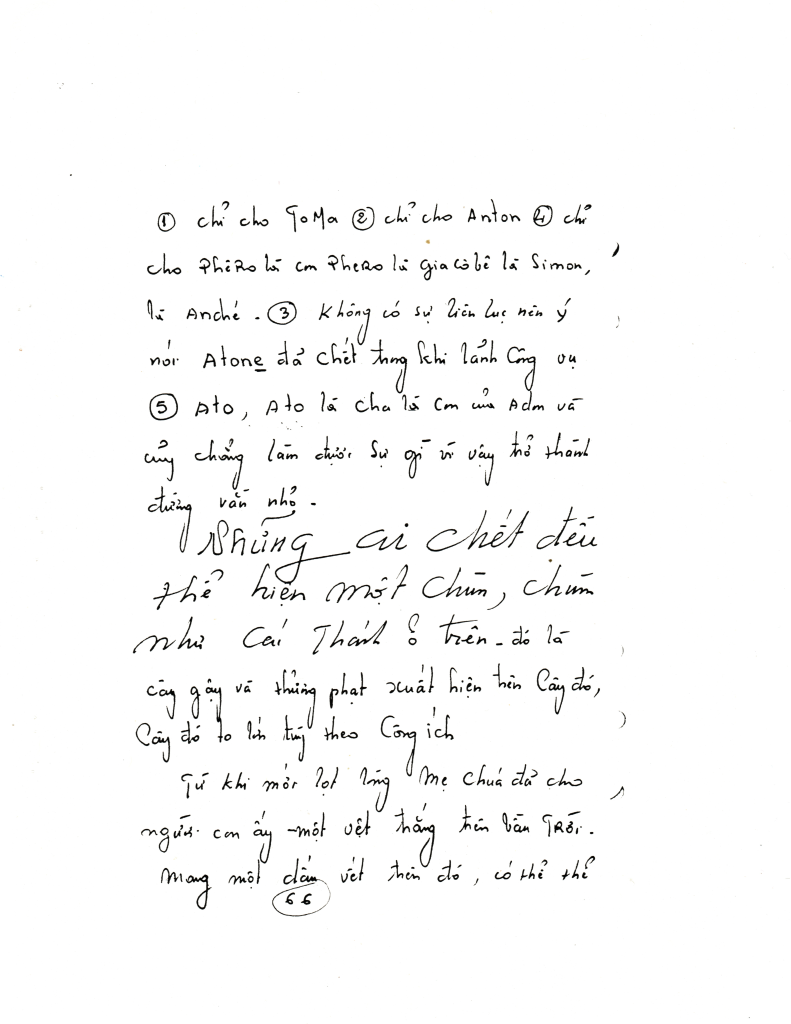 ① chỉ cho ToMa ② chỉ cho Anton ④ chỉ
cho PhêRo là con PheRo là Giacôbê là Simon,
là Anđhé. ③ Không có sự liên lục nên ý
nói Atone đã chết trong khi lảnh Công vụ
⑤ Ato, Ato là cha là con của Adm và
củng chẳng làm được sự gì vì vậy trở thành
đường vằn nhỏ.
Nhửng ai chết đều
thể hiện một chùm, chùm
như Cái Thánh ở trên. đó là
cây gậy và thủng phạt xuất hiện trên Cây đó,
Cây đó to lớn tuỳ theo Công ích
Từ khi mới lọt lòng Mẹ Chuá đã cho
người con ấy một vệt thẳng trên vần TRới.
Mang một dấu vết trên đó, có thể thể
66